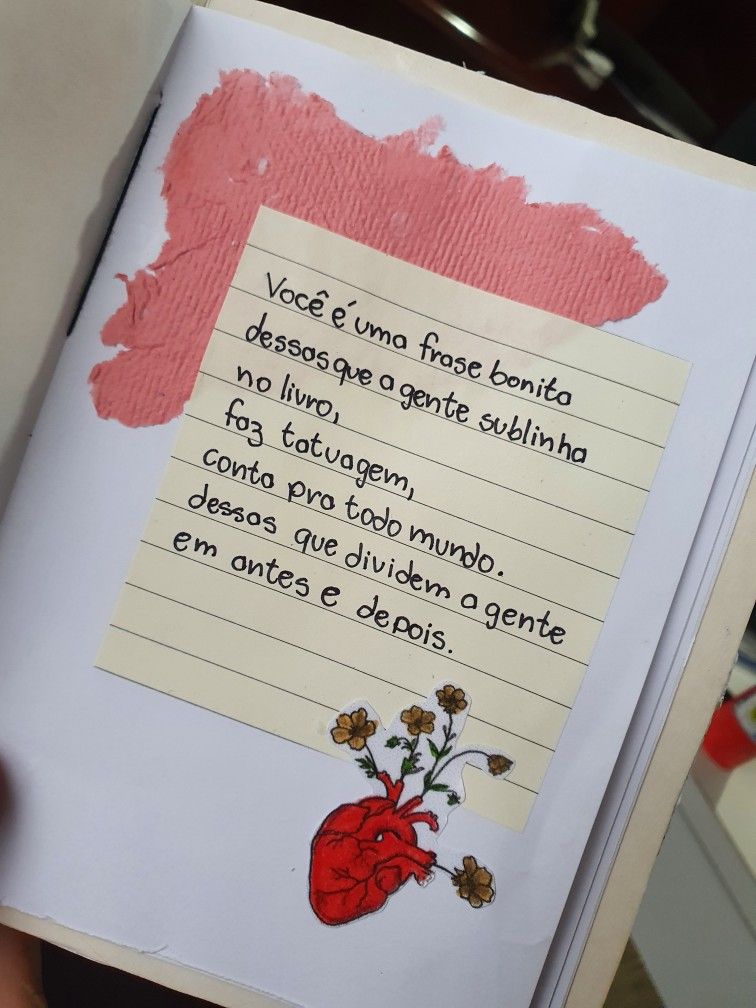 Você é uma frase bonita
dessas que a gente sublinha
no livro,
faz tatuagem,
conta pra todo mundo.
dessas que dividem a gente
em antes e depois.